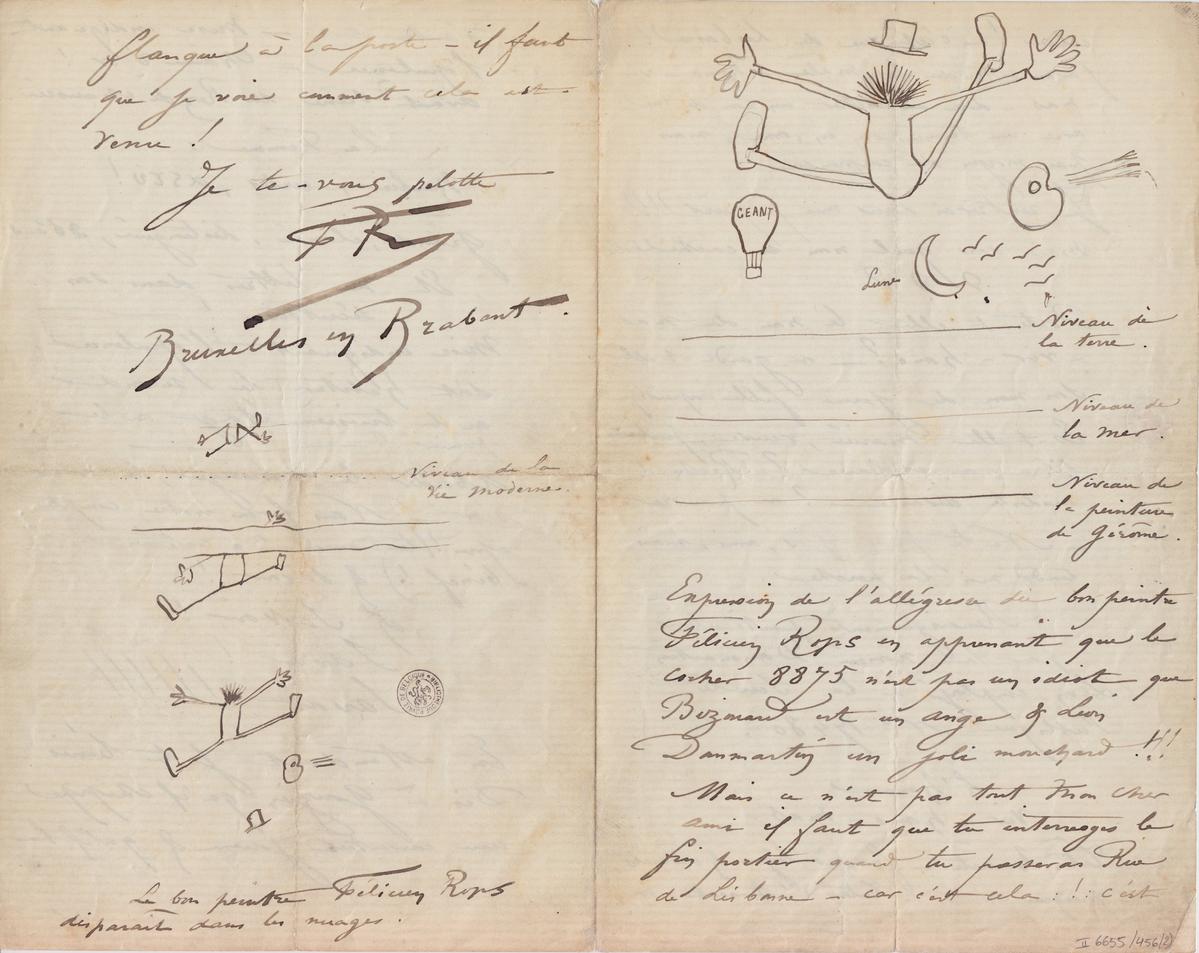 flanqué à la poste - il faut
que je voie comment cela est
venu !
Je te - vous pelotte
FR
Bruxelles en Brabant.
Niveau de la
vie moderne.
Le bon peintre Félicien Rops
disparait dans les nuages.
GEANT
Lune
Niveau de
la terre.
Niveau de
la mer.
Niveau de
la peinture
de Gérôme.
Expression de l'allégresse du bon peintre
Félicien Rops en apprenant que le
cocher 8875 n'est pas un idiot que
est un ange & Léon
Dommartin un joli mouchard !!!
Mais ce n'est pas tout mon cher
ami il faut que tu interroges le
portier quand tu passeras Rue
de Lisbonne - car c'est cela :!: c'est
II 6655/456(2)